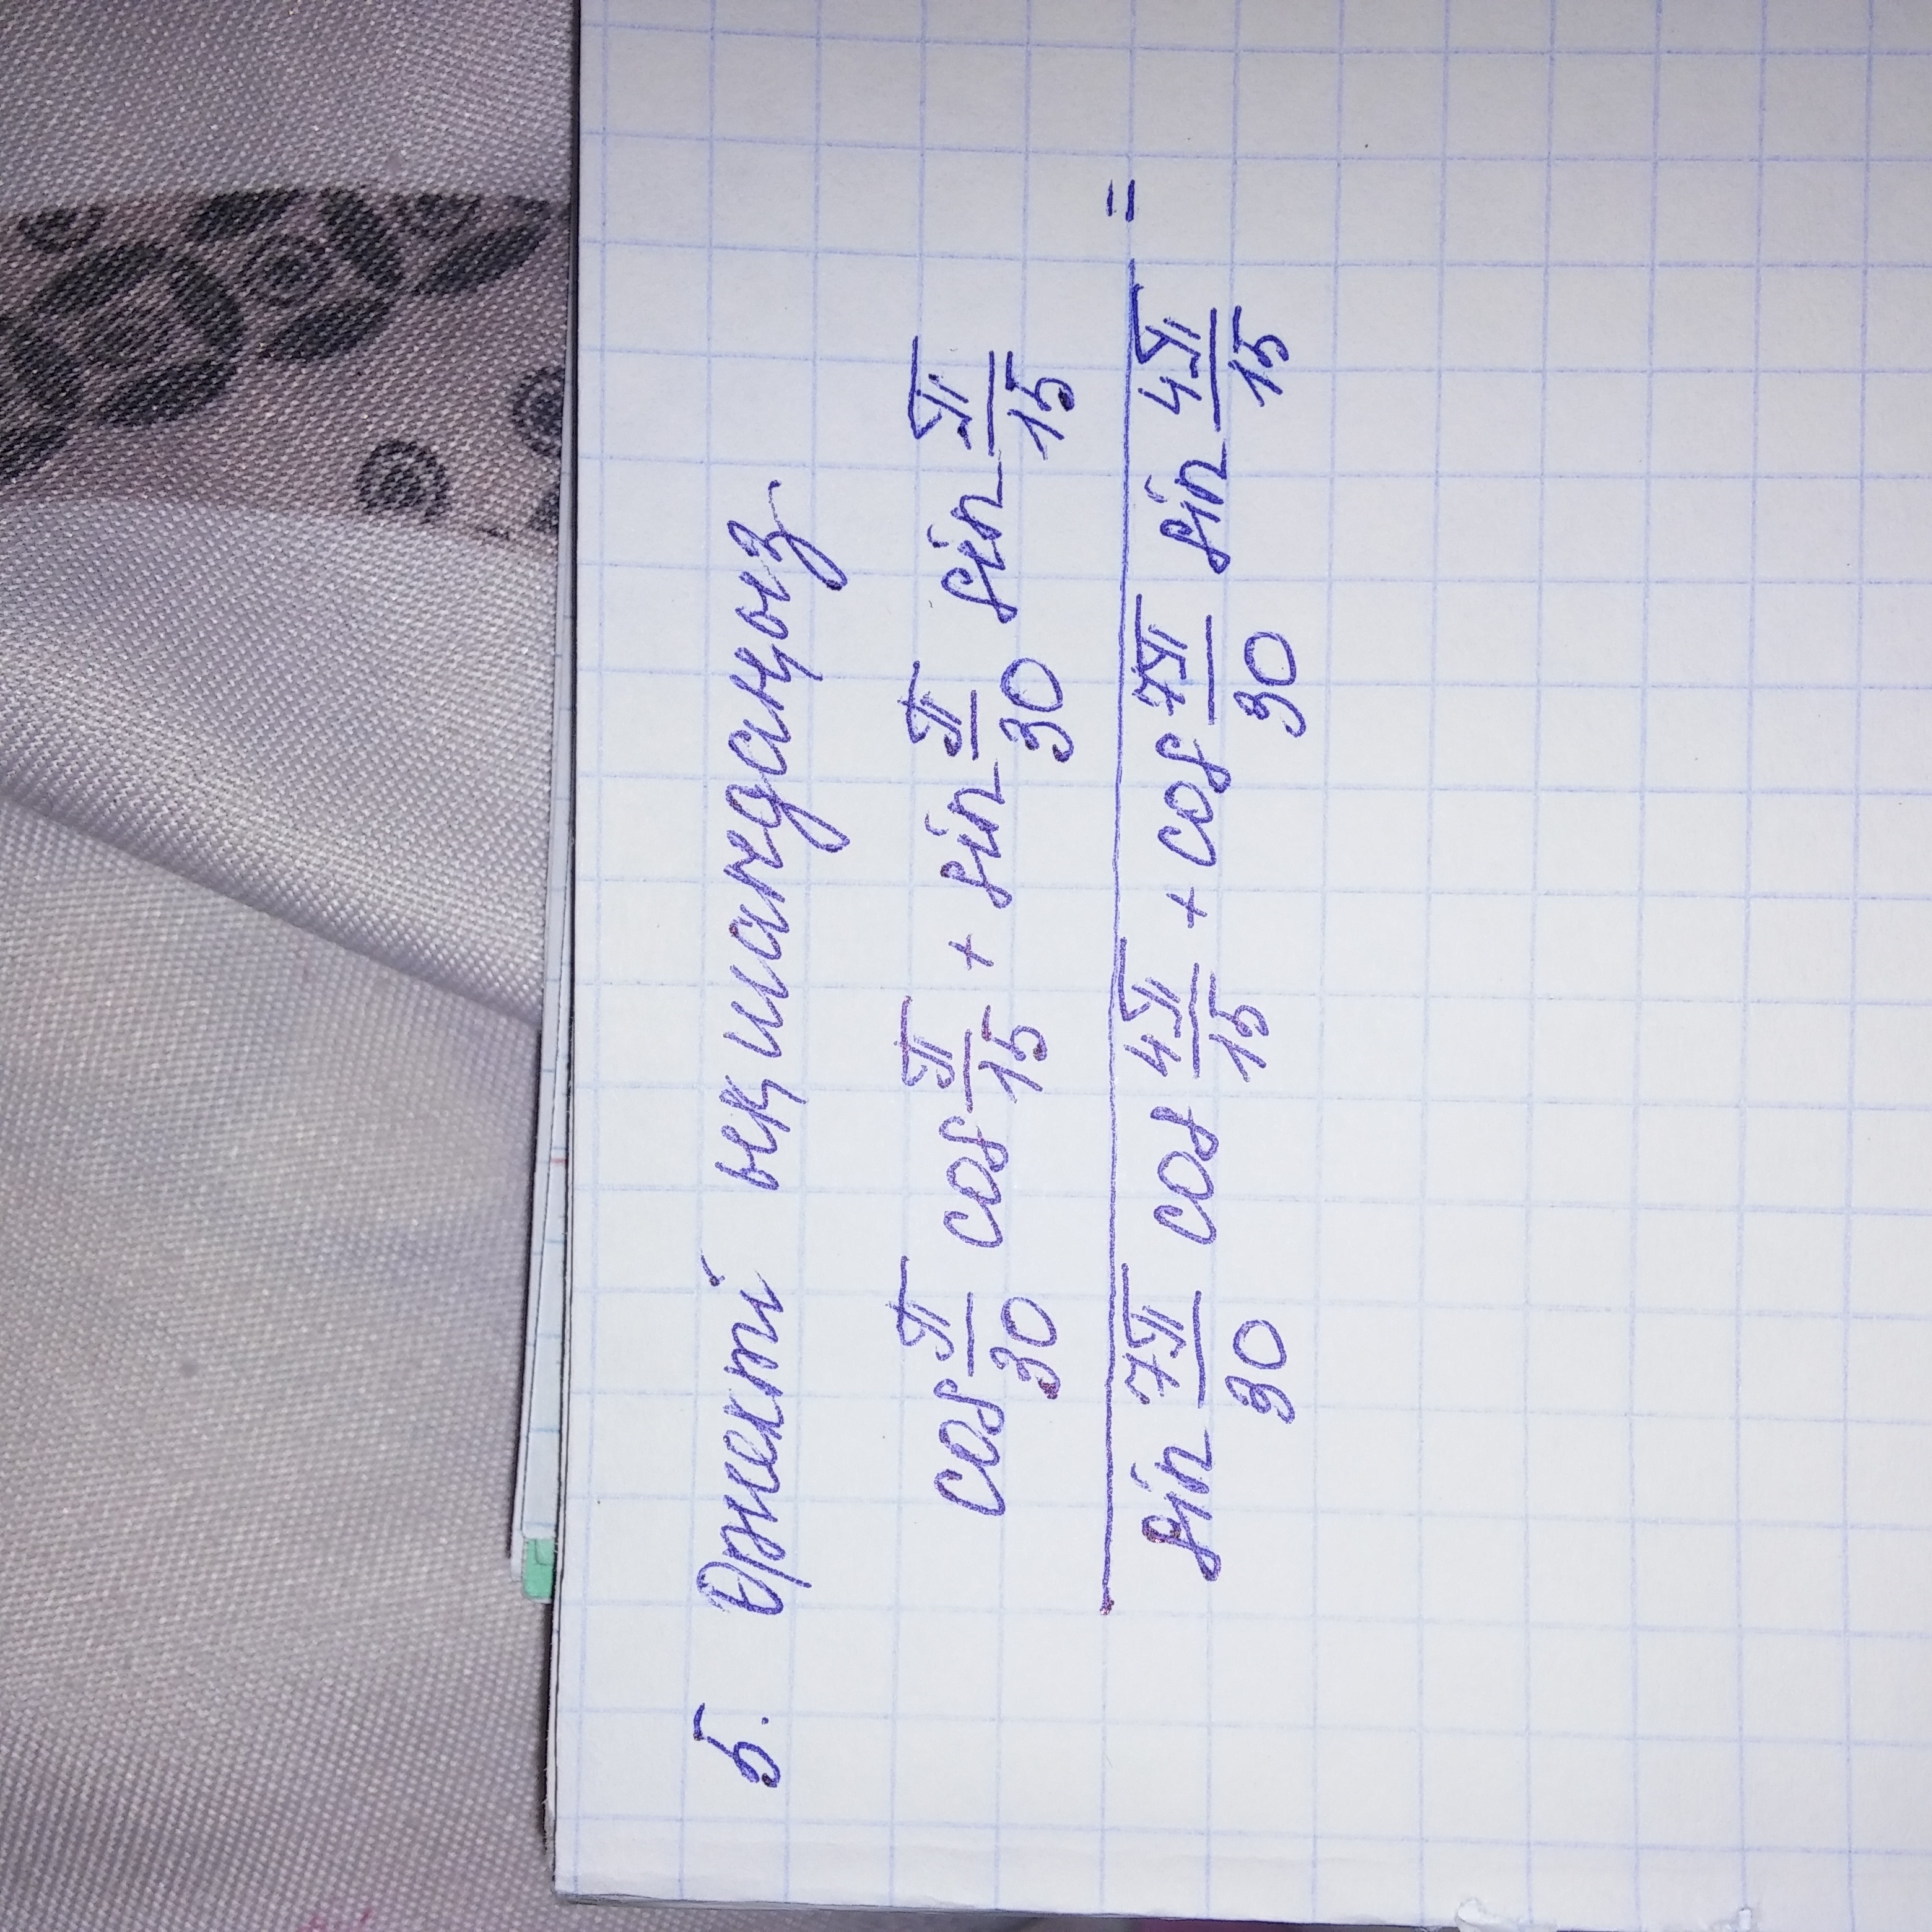 5. Өрнекті ықшамдаңыз
cos π/30 cos π/15 + sin π/30 sin π/15
sin 7π/30 cos 4π/15 + cos 7π/30 sin 4π/15 =